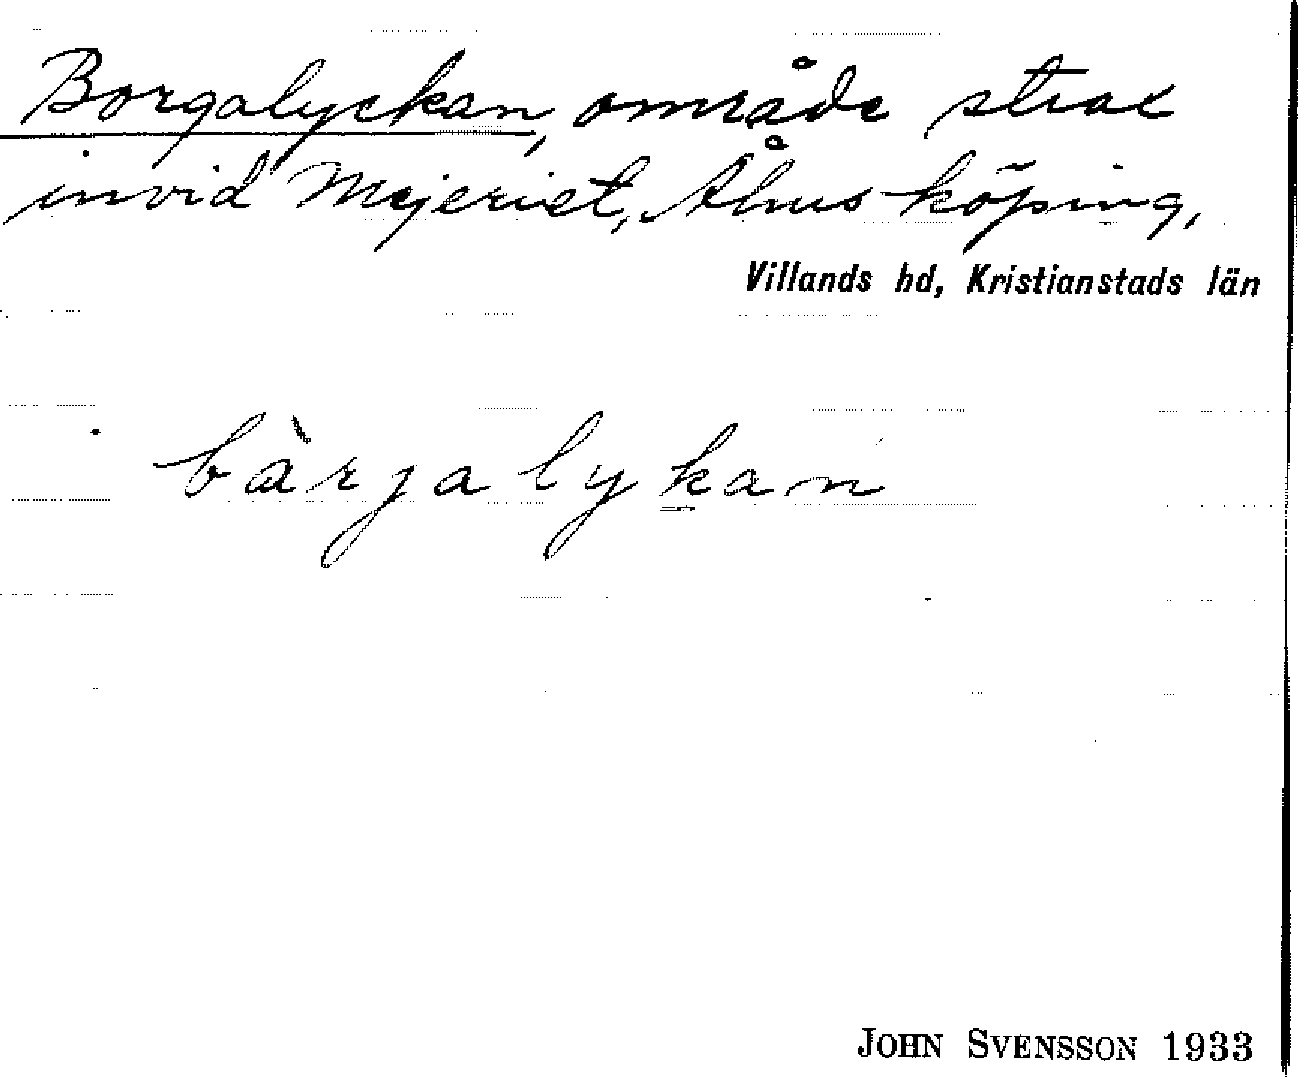 Borgalyckan, område strax
invid Mejeriet, Åhus köping,
Villands hd, Kristianstads län
bàrjalykan
JOHN SVENSSON 1933